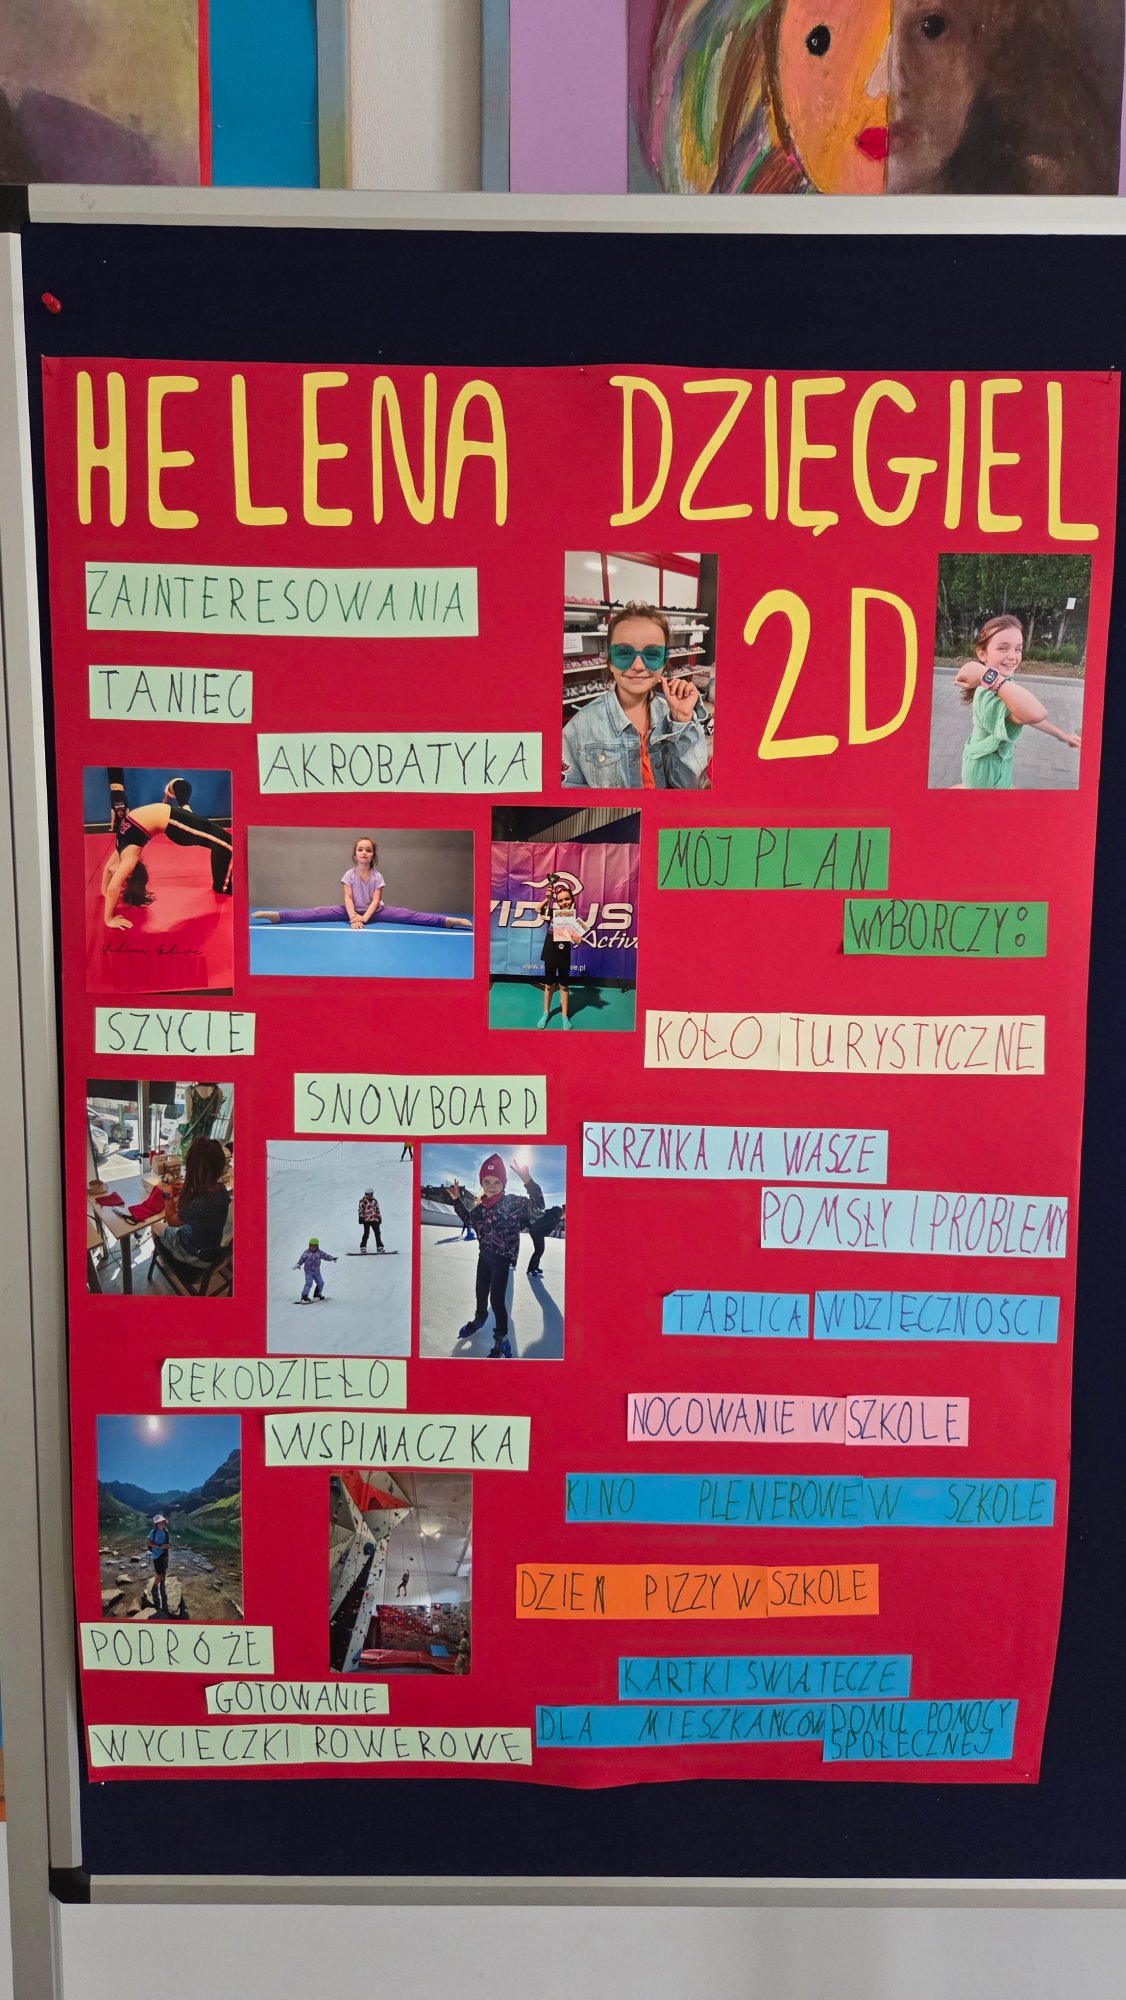 HELENA DZIĘGIEL
2D
ZAINTERESOWANIA
TANIEC
AKROBATYKA
SZYCIE
SNOWBOARD
RĘKODZIEŁO
WSPINACZKA
PODRÓŻE
GOTOWANIE
WYCIECZKI ROWEROWE
MÓJ PLAN
WYBORCZY:
KOŁO TURYSTYCZNE
SKRZNKA NA WASZE
POMSŁY I PROBLEMY
TABLICA WDZIĘCZNOŚCI
NOCOWANIE W SZKOLE
KINO PLENEROWE W SZKOLE
DZIEŃ PIZZY W SZKOLE
KARTKI ŚWIĄTECZE
DLA MIESZKAŃCÓW DOMU POMOCY
SPOŁECZNEJ
Active